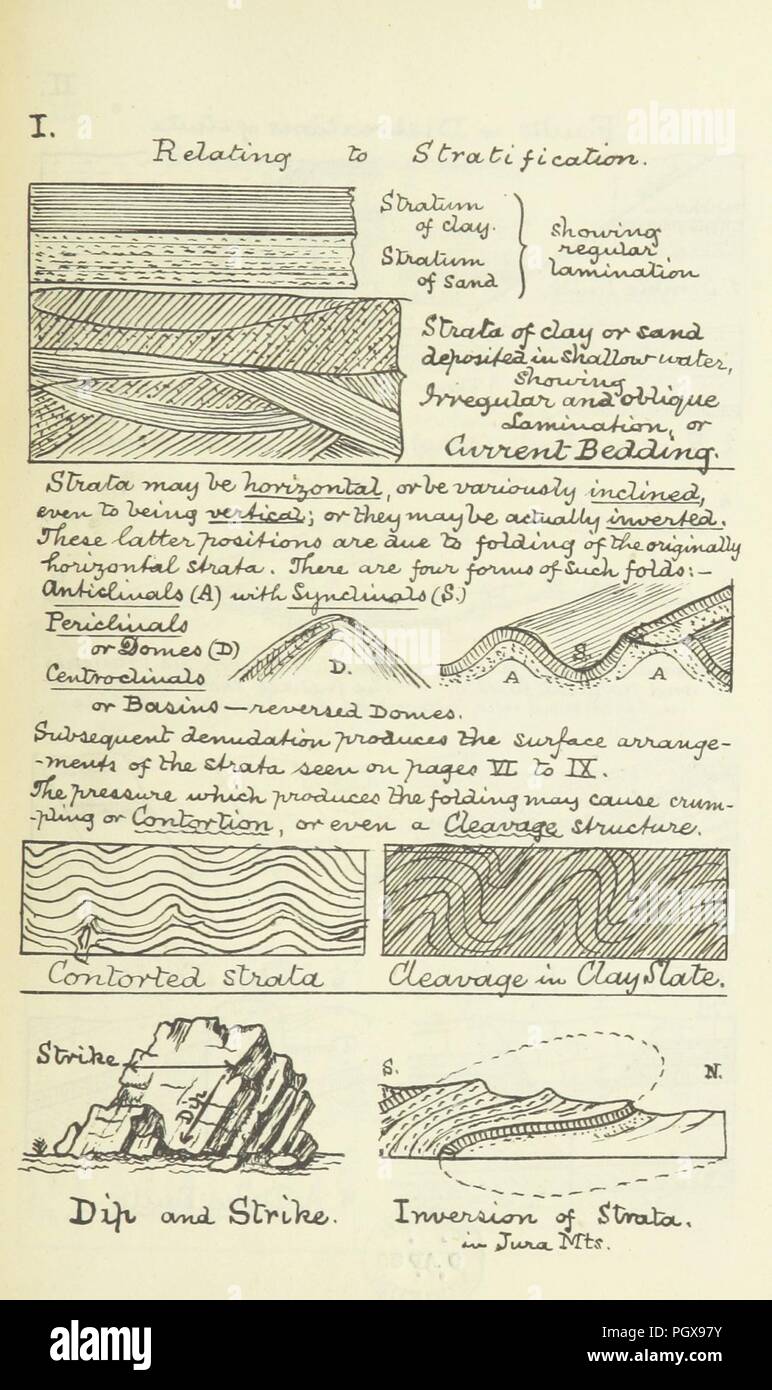 I.
Relating to Stratification.
Stratum
of clay.
Stratum
of Sand
showing
regular
lamination
Strata of clay or sand
deposited in shallow water,
showing
Irregular and oblique
Lamination, or
Current Bedding.
Strata may be horizontal, or be variously inclined,
even to being vertical; or they may be actually inverted.
These latter positions are due to folding of the originally
horizontal strata. There are four forms of such folds:-
Anticlinals (A) with Synclinals (S.)
Periclinals
or Domes (D)
Centroclinals
or Basins — reversed Domes.
D.
S.
A
A
Subsequent denudation produces the surface arrange-
-ments of the strata seen on pages VI to IX.
The pressure which produces the folding may cause crum-
-pling or Contortion, or even a Cleavage structure.
Contorted strata
Cleavage in Clay Slate.
Strike
Dip
S.
N.
Dip and Strike.
Inversion of Strata.
in Jura Mts.
a
alamy
alamy
alamy
alamy
Image ID: PGX97Y
www.alamy.com